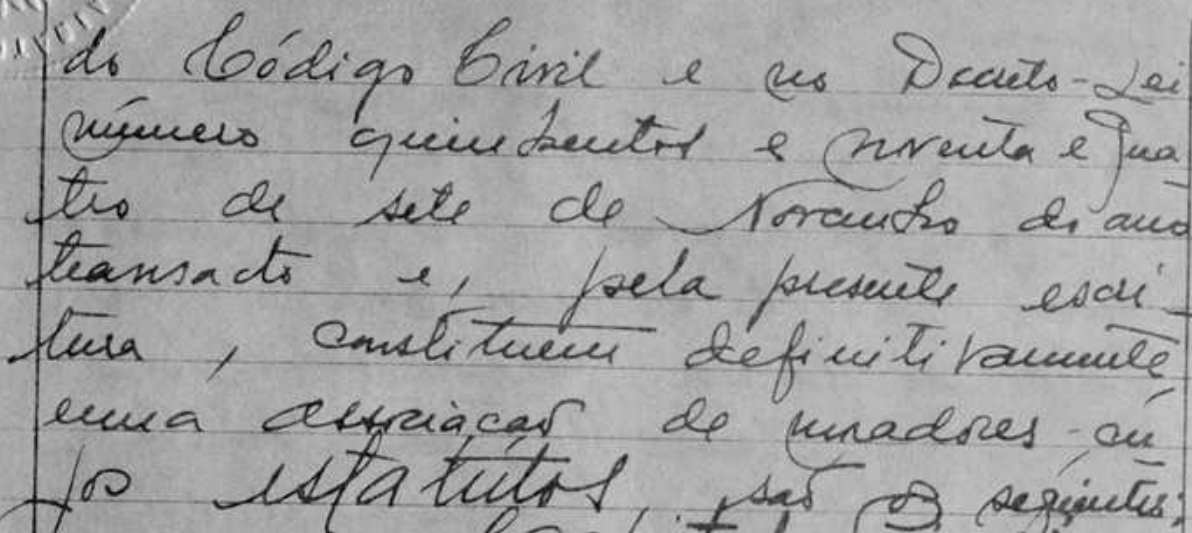 do Código Civil e no Decreto-Lei
número quinhentos e noventa e qua
tro de sete de Novembro do ano
transacto e, pela presente escri-
tura, constituem definitivamente
uma associação de moradores cu
jos estatútos, são os seguintes: